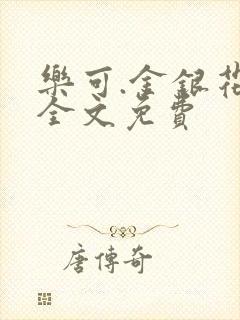 樂可.金銀花
全文免費
唐傳奇